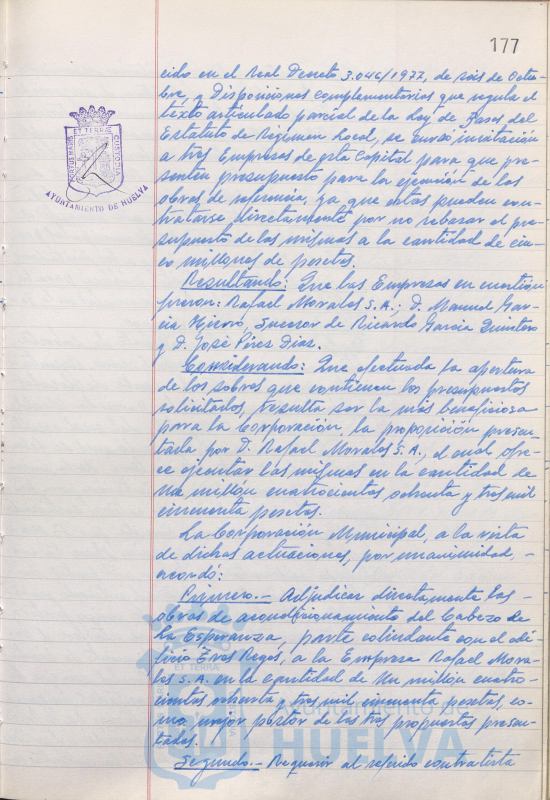 177
cido en el Real Decreto 3.046/1977, de seis de Octu-
bre, y Disposiciones complementarias que regula el
texto articulado parcial de la Ley de Bases del
Estatuto de Régimen Local, se cursó invitación
a tres Empresas de esta Capital para que pre-
senten presupuesto para la ejecución de las
obras de referencia, ya que estas pueden con-
tratarse directamente por no rebasar el pre-
supuesto de las mismas a la cantidad de cin-
co millones de pesetas.
Resultando: Que las Empresas en cuestión
fueron: Rafael Morales S.A.; D. Manuel Gar-
cia Hierro, Sucesor de Ricardo Garcia Quintero
y D. José Pérez Diaz.
Considerando: Que efectuada la apertura
de los sobres que contienen los presupuestos
solicitados, resulta ser la más beneficiosa
para la Corporación, la proposición presen-
tada por D. Rafael Morales S.A., el cual ofre-
ce ejecutar las mismas en la cantidad de
un millón cuatrocientas ochenta y tres mil
cincuenta pesetas.
La Corporación Municipal, a la vista
de dichas actuaciones, por unanimidad, -
acordó:
Primero.- Adjudicar directamente las -
obras de acondicionamiento del Cabezo de
La Esperanza, parte colindante con el edi-
ficio Tres Reyes, a la Empresa Rafael Mora-
les S.A. en la cantidad de un millón cuatro-
cientas ochenta y tres mil cincuenta pesetas, co-
mo mejor postor de las tres propuestas presen-
tadas.
Segundo.- Requerir al referido contratista
PORTUS MARIS ET TERRAE CUSTODIA
AYUNTAMIENTO DE HUELVA
Ayuntamiento de
HUELVA